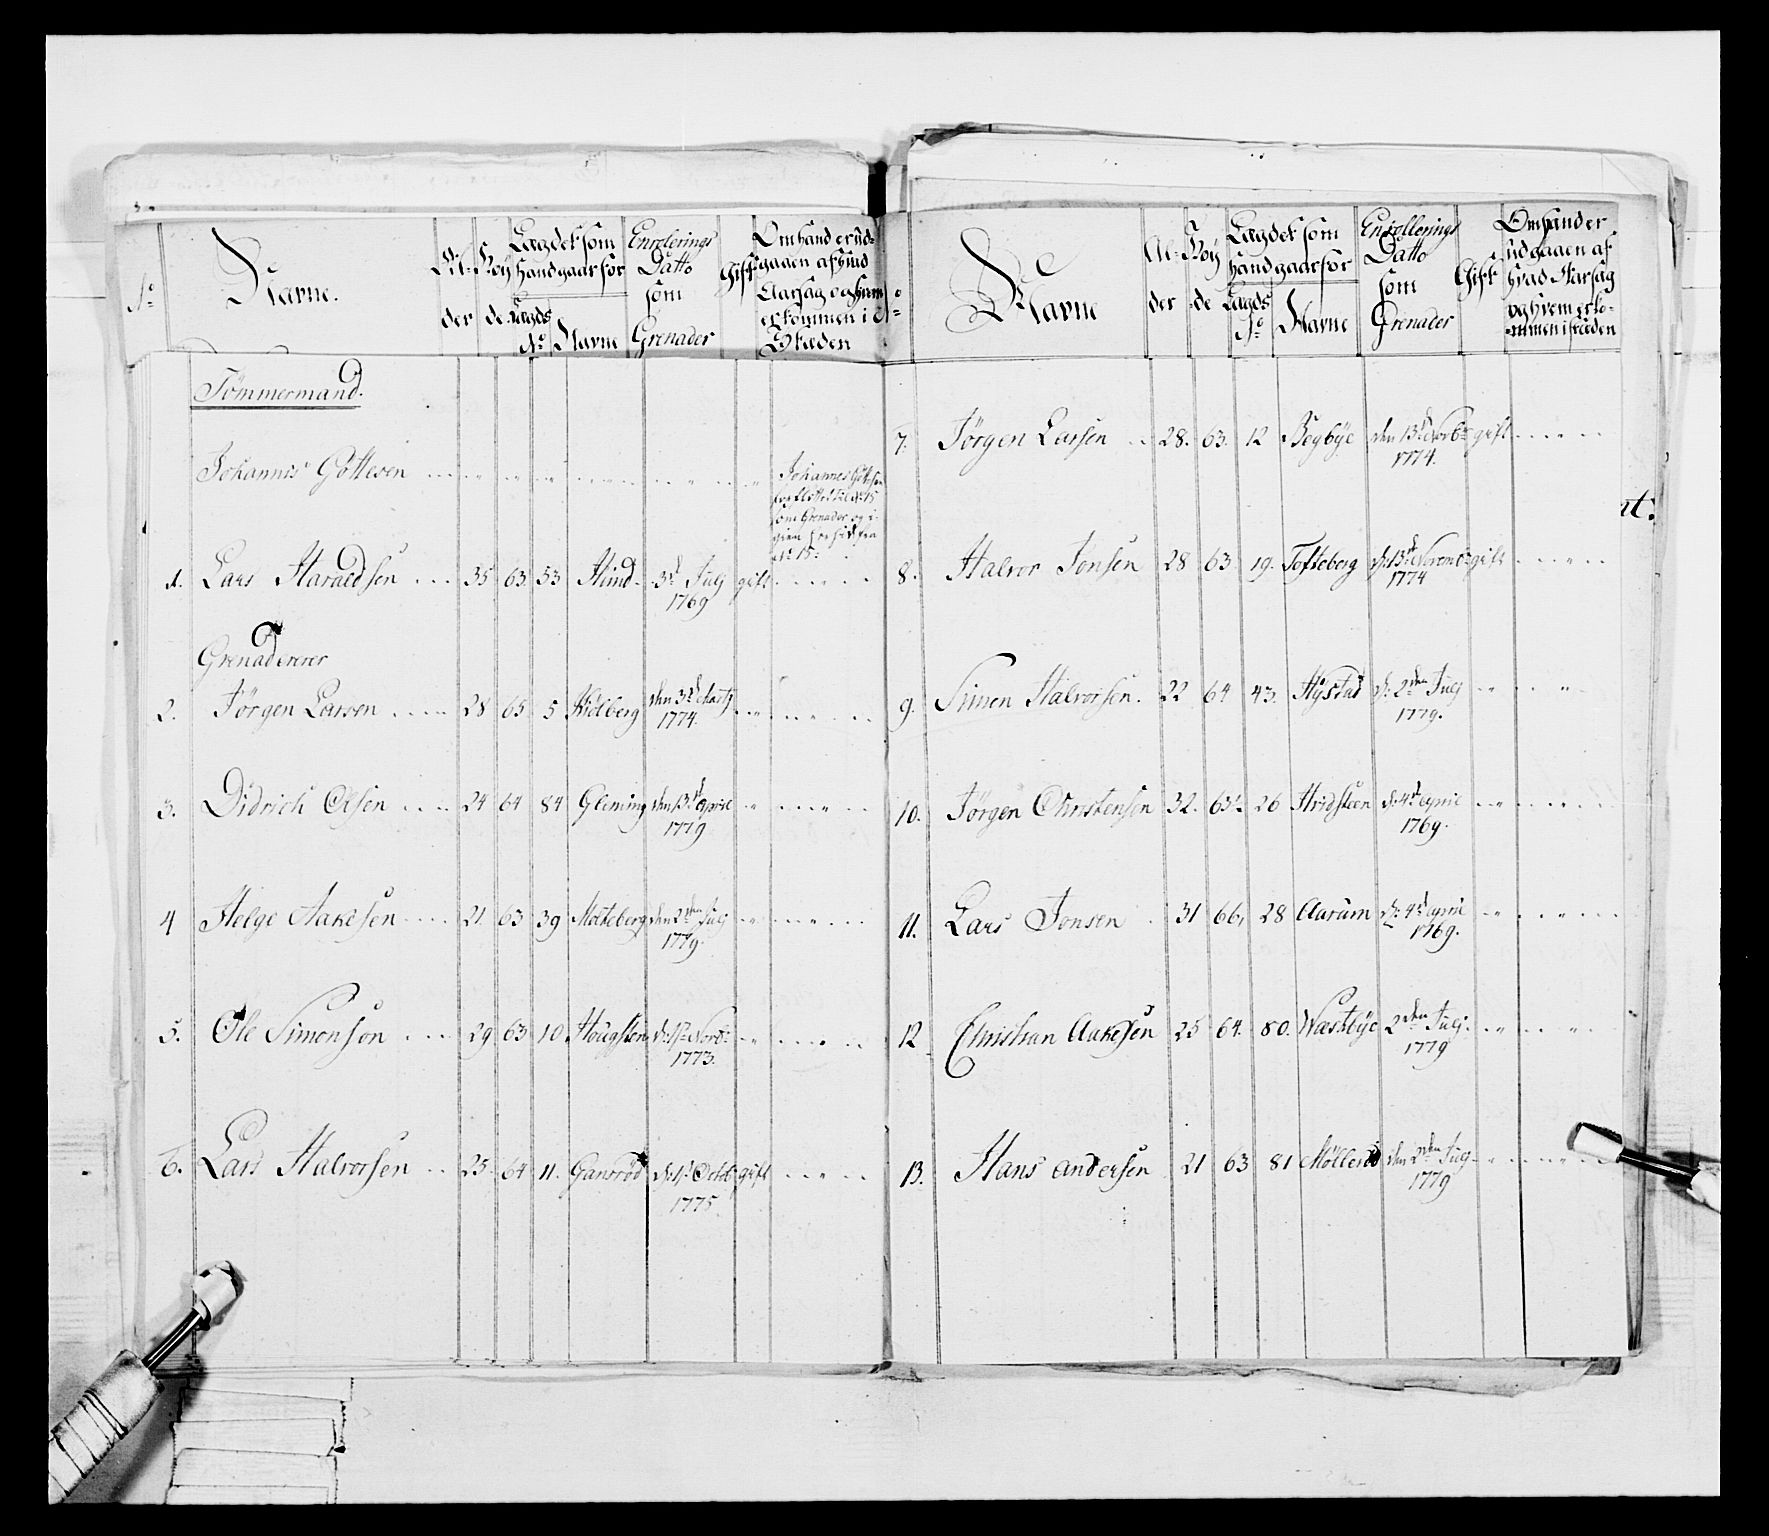 No
Navne.
Al-
der
Høy
de
Lægdet som
hand gaar for
Lægds
No
Navne
Enrolerings
Datto
som
Grenader
Gift
Om hand er ud-
gaaen af hvad
Aarsag og hvem
er kommen i
Stæden
Tömmermand.
Johannis Gottesen
Johannes Gottesen
forflöttet til No 15
som Grenader og i-
gien
No 15:
1. Lars Haraldsen 35 63 53 Hund 3d July gift
1769
Grenaderer
2. Jörgen Larsen 28 65 5 Kidberg den 3d Martz
1774.
3. Didrich Olsen 24 64 84 Gleming den 13d Aprie
1779
4 Helge Aakesen 21 63 39 Molteberg den 2den July
1779.
5. Ole Simonsøn 29 63 10 Hougsten d: 1t Novb:
1773.
6. Lars Halvorsen 25 64 11. Gansröd d: 1t Octb gift
1775
No
Navne
Al-
der
Høy
de
Lægdet som
hand gaar for
Lægds
No
Navne
Enrollerings
Datto
som
Grenader
Gift
Om hand er
udgaaen af
hvad Aarsag
og hvem er ko-
mmen i stæden
7. Jörgen Larsen 28. 63. 12 Begbÿe den 13d Novbr gift
1774.
8. Halvor Jonsen 28 63 19. Tofteberg d: 13d Novemb: gift
1774
nt:
9. Simen Halvorsen. 22 64 43. Hÿstad d: 2den July
1779.
10. Jörgen Christensen 32. 63½ 26 Hvidsteen d: 4d Aprie
1769.
11. Lars Jonsen 31 66, 28 Aarum d: 4d Aprie
1769.
12 Christian Aakesen 25 64. 80. Wæstbÿe 2den July
1779
13. Hans Andersen 21 63 81 Möllerød den 2den July
1779